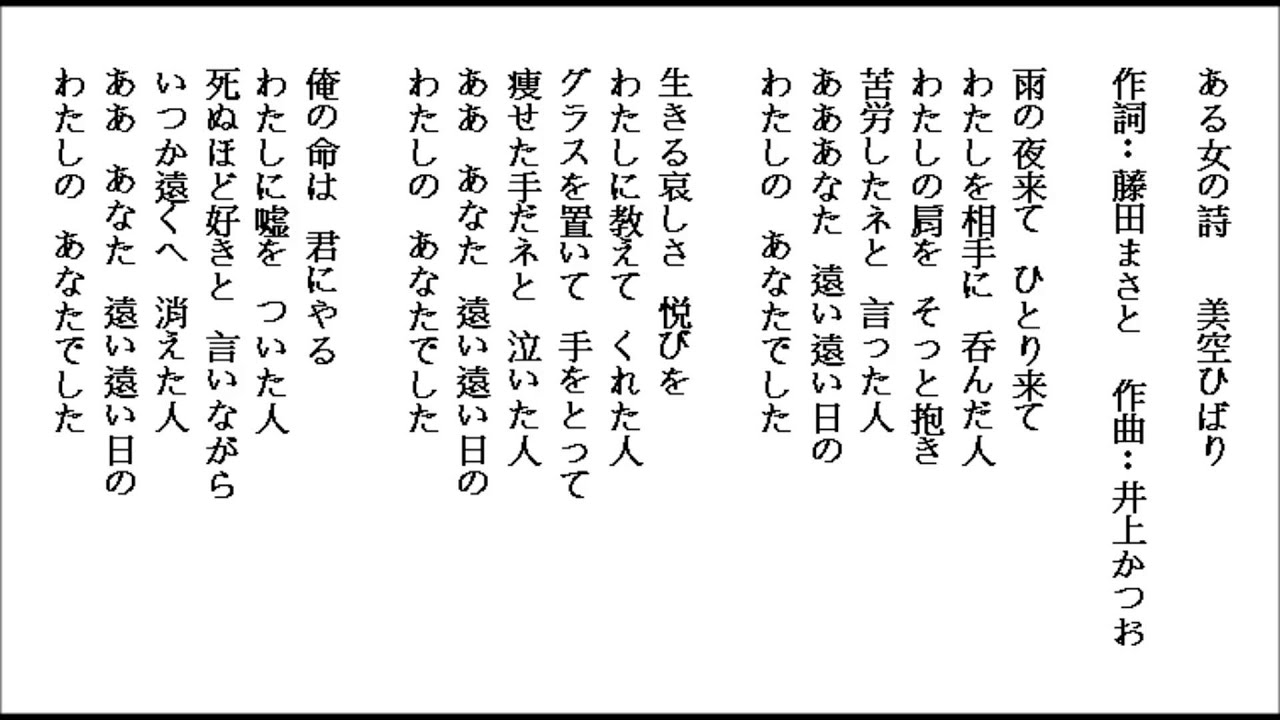 ある女の詩　　美空ひばり
作詞：藤田まさと　作曲：井上かつお
雨の夜来て　ひとり来て
わたしを相手に　呑んだ人
わたしの肩を　そっと抱き
苦労したネと　言った人
あああなた　遠い遠い日の
わたしの　あなたでした
生きる哀しさ　悦びを
わたしに教えて　くれた人
グラスを置いて　手をとって
痩せた手だネと　泣いた人
ああ　あなた　遠い遠い日の
わたしの　あなたでした
俺の命は　君にやる
わたしに嘘を　ついた人
死ぬほど好きと　言いながら
いつか遠くへ　消えた人
ああ　あなた　遠い遠い日の
わたしの　あなたでした